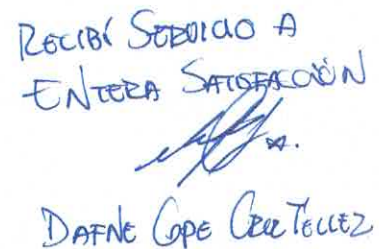 RECIBÍ SERVICIO A
ENTERA SATISFACCIÓN
DAFNE TELLEZ